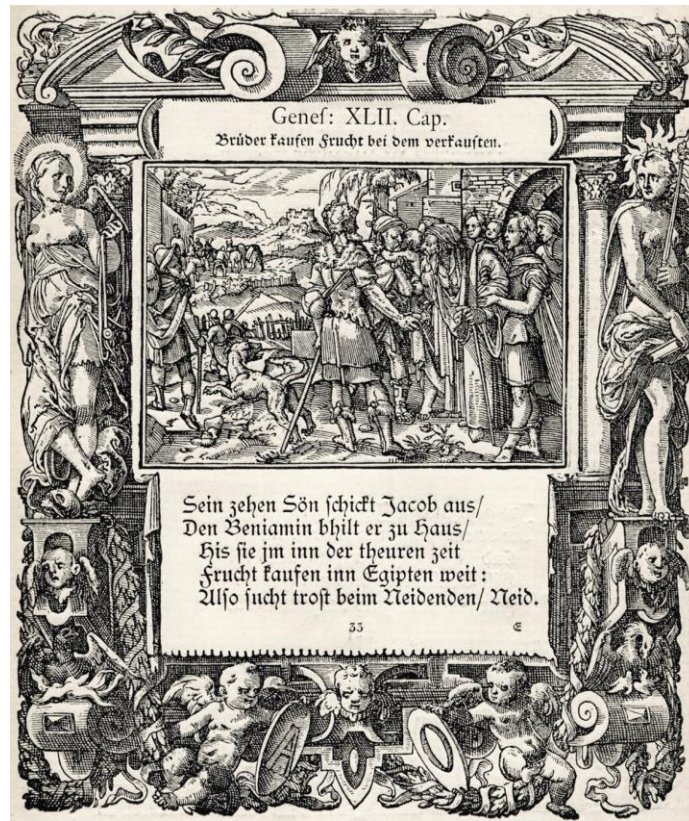 Geneſ: XLII. Cap.
Brüder kaufen Frucht bei dem verkauften.
Sein zehen Sön ſchickt Jacob aus/
Den Beniamin bhilt er zu Haus/
His ſie jm inn der theuren zeit
Frucht kaufen inn Egipten weit:
Alſo ſucht troſt beim Neidenden/ Neid.
33 E
A O